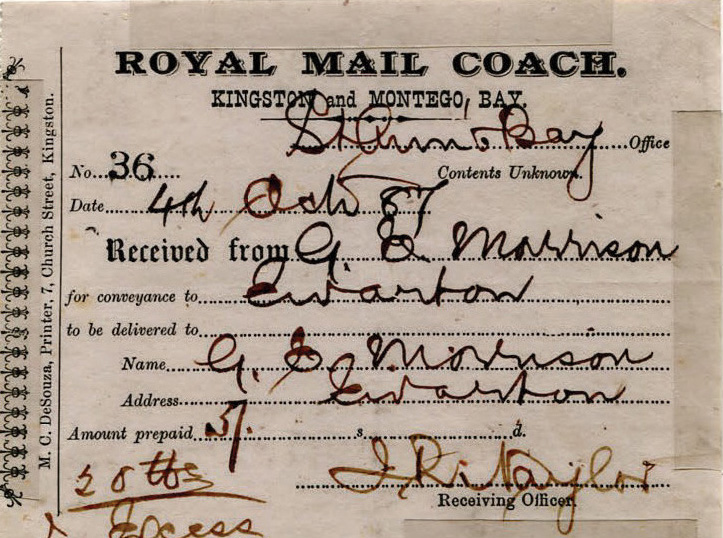 ROYAL MAIL COACH.
KINGSTON and MONTEGO BAY.
St Ann's Bay Office
No. 36 Contents Unknown.
Date 4th Oct 87
Received from G. E. Morrison
for conveyance to Ewarton
to be delivered to
Name G. E. Morrison
Address Ewarton
Amount prepaid 5/. s. d.
20 lbs J. R. Naylor
Receiving Officer.
Excess
M. C. DeSouza, Printer, 7, Church Street, Kingston.